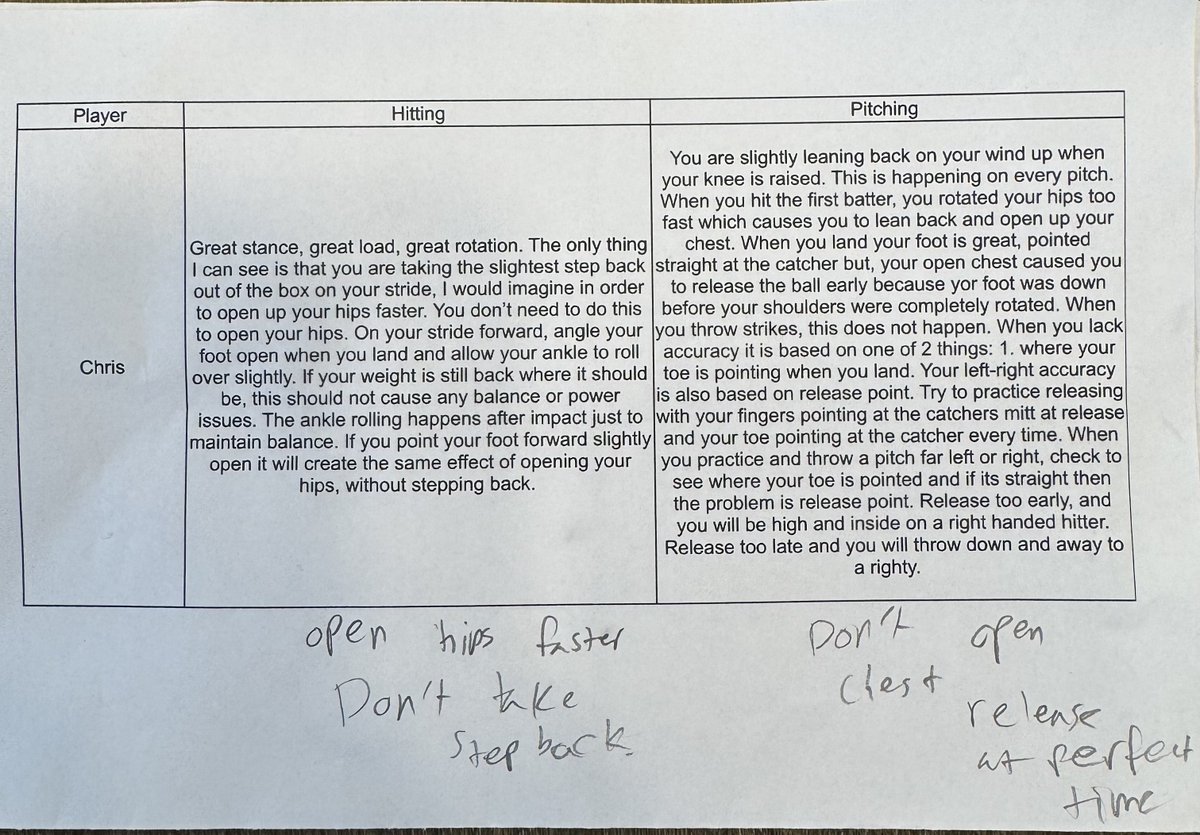 Player
Hitting
Pitching
Chris
Great stance, great load, great rotation. The only thing
I can see is that you are taking the slightest step back
out of the box on your stride, I would imagine in order
to open up your hips faster. You don't need to do this
to open your hips. On your stride forward, angle your
foot open when you land and allow your ankle to roll
over slightly. If your weight is still back where it should
be, this should not cause any balance or power
issues. The ankle rolling happens after impact just to
maintain balance. If you point your foot forward slightly
open it will create the same effect of opening your
hips, without stepping back.
You are slightly leaning back on your wind up when
your knee is raised. This is happening on every pitch.
When you hit the first batter, you rotated your hips too
fast which causes you to lean back and open up your
chest. When you land your foot is great, pointed
straight at the catcher but, your open chest caused you
to release the ball early because yor foot was down
before your shoulders were completely rotated. When
you throw strikes, this does not happen. When you lack
accuracy it is based on one of 2 things: 1. where your
toe is pointing when you land. Your left-right accuracy
is also based on release point. Try to practice releasing
with your fingers pointing at the catchers mitt at release
and your toe pointing at the catcher every time. When
you practice and throw a pitch far left or right, check to
see where your toe is pointed and if its straight then
the problem is release point. Release too early, and
you will be high and inside on a right handed hitter.
Release too late and you will throw down and away to
a righty.
open hips faster
Don't take
step back.
Don't open
chest
release
at perfect
time